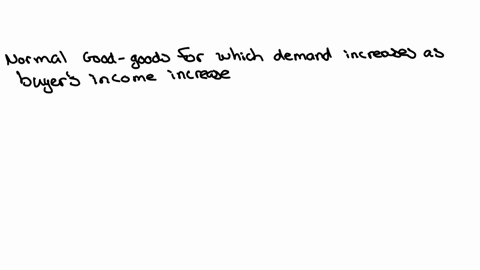 Normal Good-goods for which demand increases as
buyer's income increase